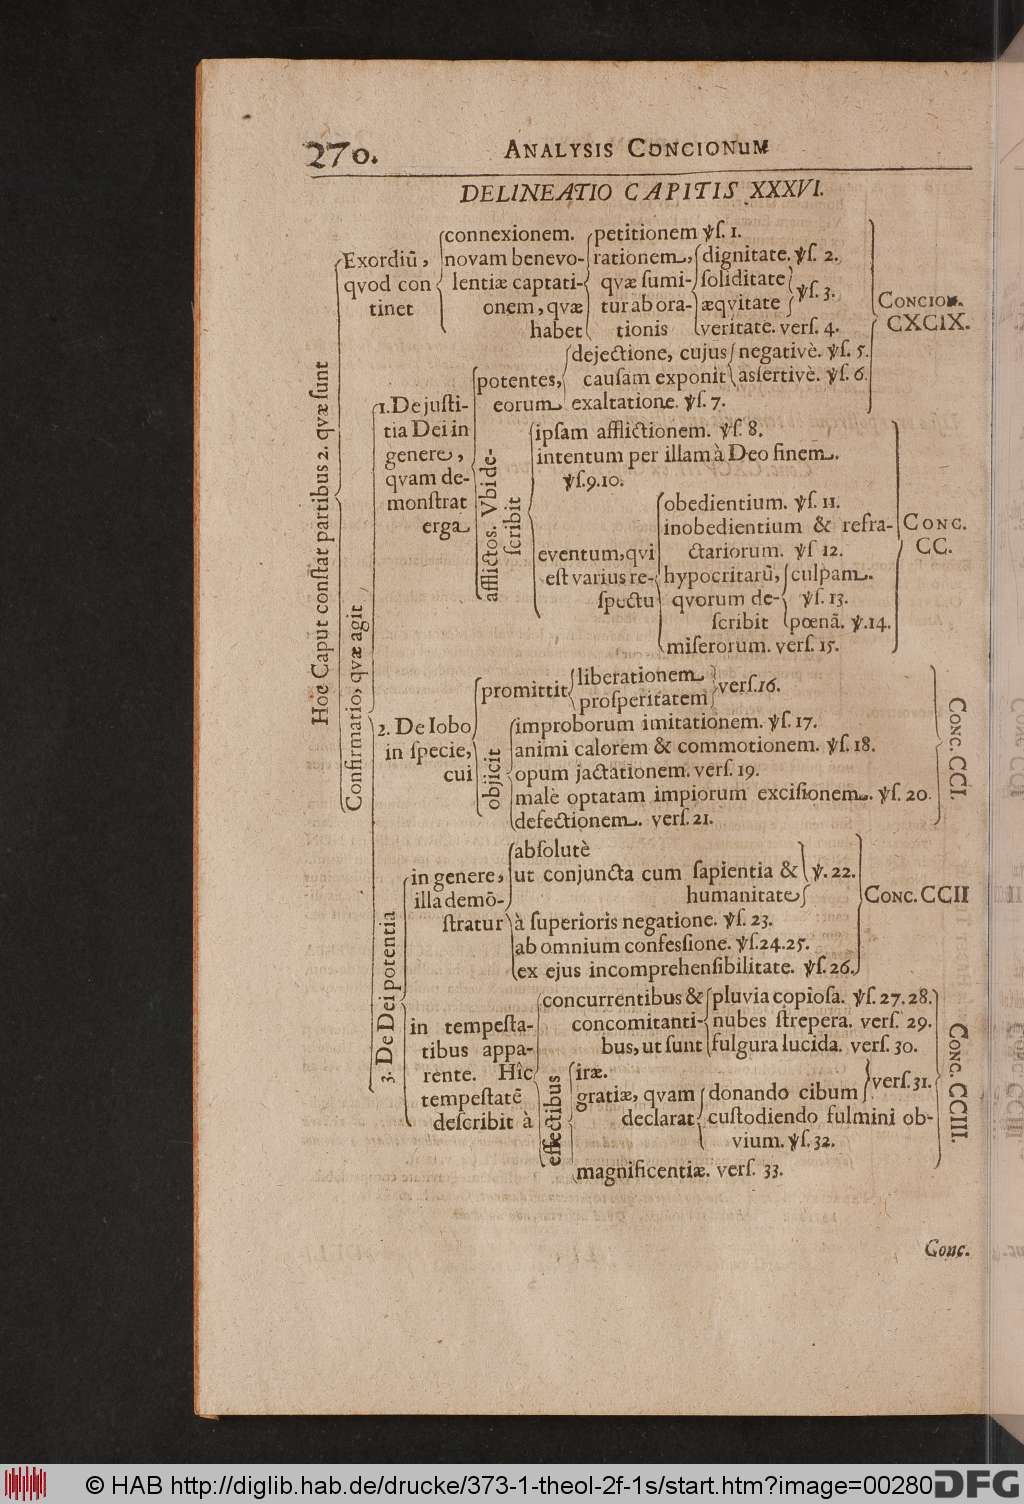 270.
ANALYSIS CONCIONUM
DELINEATIO CAPITIS XXXVI.
Hoc Caput constat partibus 2. qvæ sunt
Exordiũ,
qvod con
tinet
connexionem.
novam benevo-
lentiæ captati-
onem, qvæ
habet
petitionem ℣s. 1.
rationem,
qvæ sumi-
tur ab ora-
tionis
dignitate. ℣s. 2.
soliditate
æqvitate
℣s. 3.
veritate. vers. 4.
CONCION.
CXCIX.
Confirmatio, qvæ agit
1. De justi-
tia Dei in
genere,
qvam de-
monstrat
erga
potentes,
eorum
dejectione, cujus
causam exponit
negativè. ℣s. 5.
assertivè. ℣s. 6.
exaltatione. ℣s. 7.
afflictos. Vbi de-
scribit
ipsam afflictionem. ℣s. 8.
intentum per illam à Deo finem.
℣s. 9. 10.
eventum, qvi
est varius re-
spectu
obedientium. ℣s. 11.
inobedientium & refra-
ctariorum. ℣s 12.
hypocritarũ,
qvorum de-
scribit
culpam.
℣s. 13.
pœnã. ℣. 14.
miserorum. vers. 15.
CONC.
CC.
2. De Iobo
in specie,
cui
promittit
liberationem
prosperitatem
vers. 16.
objicit
improborum imitationem. ℣s. 17.
animi calorem & commotionem. ℣s. 18.
opum jactationem. vers. 19.
malè optatam impiorum excisionem. ℣s. 20.
defectionem. vers. 21.
CONC. CCI.
3. De Dei potentia
in genere,
illa demõ-
stratur
absolutè
ut conjuncta cum sapientia &
humanitate
℣. 22.
à superioris negatione. ℣s. 23.
ab omnium confessione. ℣s. 24. 25.
ex ejus incomprehensibilitate. ℣s. 26.
CONC. CCII
in tempesta-
tibus appa-
rente. Hîc
tempestatẽ
describit à
concurrentibus &
concomitanti-
bus, ut sunt
pluvia copiosa. ℣s. 27. 28.
nubes strepera. vers. 29.
fulgura lucida. vers. 30.
effectibus
iræ.
gratiæ, qvam
declarat
donando cibum
vers. 31.
custodiendo fulmini ob-
vium. ℣s. 32.
magnificentiæ. vers. 33.
CONC. CCIII.
Conc.
© HAB http://diglib.hab.de/drucke/373-1-theol-2f-1s/start.htm?image=00280
DFG